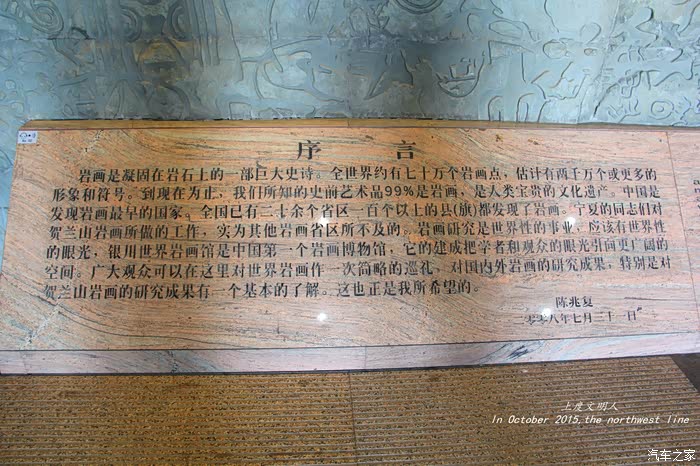 序言
岩画是凝固在岩石上的一部巨大史诗。全世界约有七十万个岩画点，估计有两千万个或更多的
形象和符号。到现在为止，我们所知的史前艺术品99%是岩画，是人类宝贵的文化遗产。中国是
发现岩画最早的国家。全国已有二十余个省区一百个以上的县(旗)都发现了岩画。宁夏的同志们对
贺兰山岩画所做的工作，实为其他岩画省区所不及的。岩画研究是世界性的事业，应该有世界性
的眼光，银川世界岩画馆是中国第一个岩画博物馆，它的建成把学者和观众的眼光引向更广阔的
空间。广大观众可以在这里对世界岩画作一次简略的巡礼，对国内外岩画的研究成果，特别是对
贺兰山岩画的研究成果有一个基本的了解。这也正是我所希望的。
陈兆复
二零零八年七月二十一日
上度文明人
In October 2015,the northwest line
汽车之家